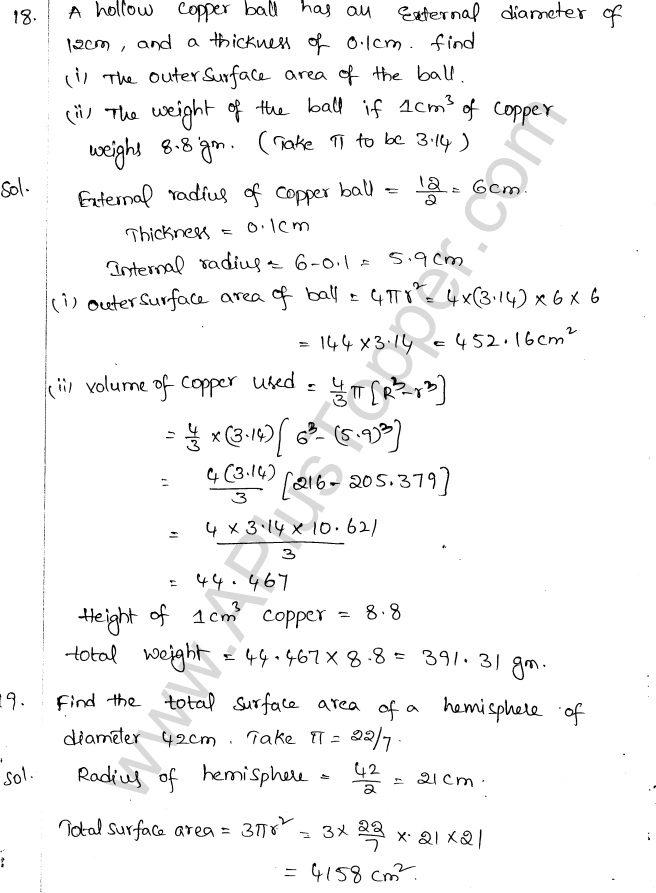 18. A hollow copper ball has an External diameter of
12cm, and a thickness of 0.1cm. find
(i) The outersurface area of the ball.
(ii) The weight of the ball if 1cm³ of copper
weighs 8.8 gm. (Take π to be 3.14)
Sol. External radius of copper ball = 12/2 = 6cm.
Thickness = 0.1cm
Internal radius = 6-0.1 = 5.9cm
(i) outersurface area of ball = 4πr² = 4×(3.14)×6×6
= 144×3.14 = 452.16cm²
(ii) volume of copper used = 4/3 π [R³-r³]
= 4/3 ×(3.14)[6³-(5.9)³]
= 4(3.14)/3 [216-205.379]
= 4×3.14×10.621/3
= 44.467
Height of 1cm³ copper = 8.8
total weight = 44.467×8.8 = 391.31 gm.
19. Find the total surface area of a hemisphere of
diameter 42cm. Take π = 22/7.
Sol. Radius of hemisphere = 42/2 = 21cm.
Total surface area = 3πr² = 3× 22/7 ×21×21
= 4158 cm².
www.APlusTopper.com